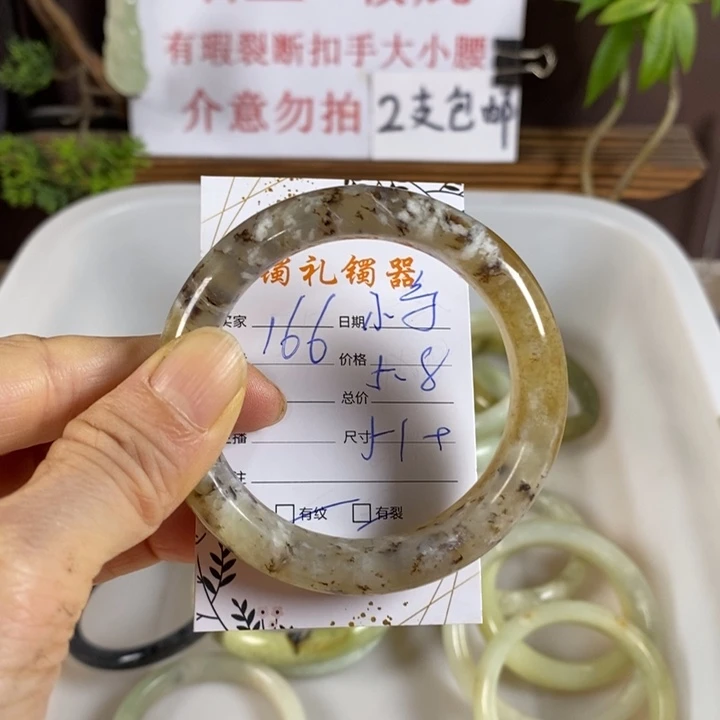 有瑕裂断扣手大小腰
介意勿拍 2支包邮
镯礼镯器
买家 166 日期
价格 5.8
总价
主播 尺寸 51+
注
有纹 有裂